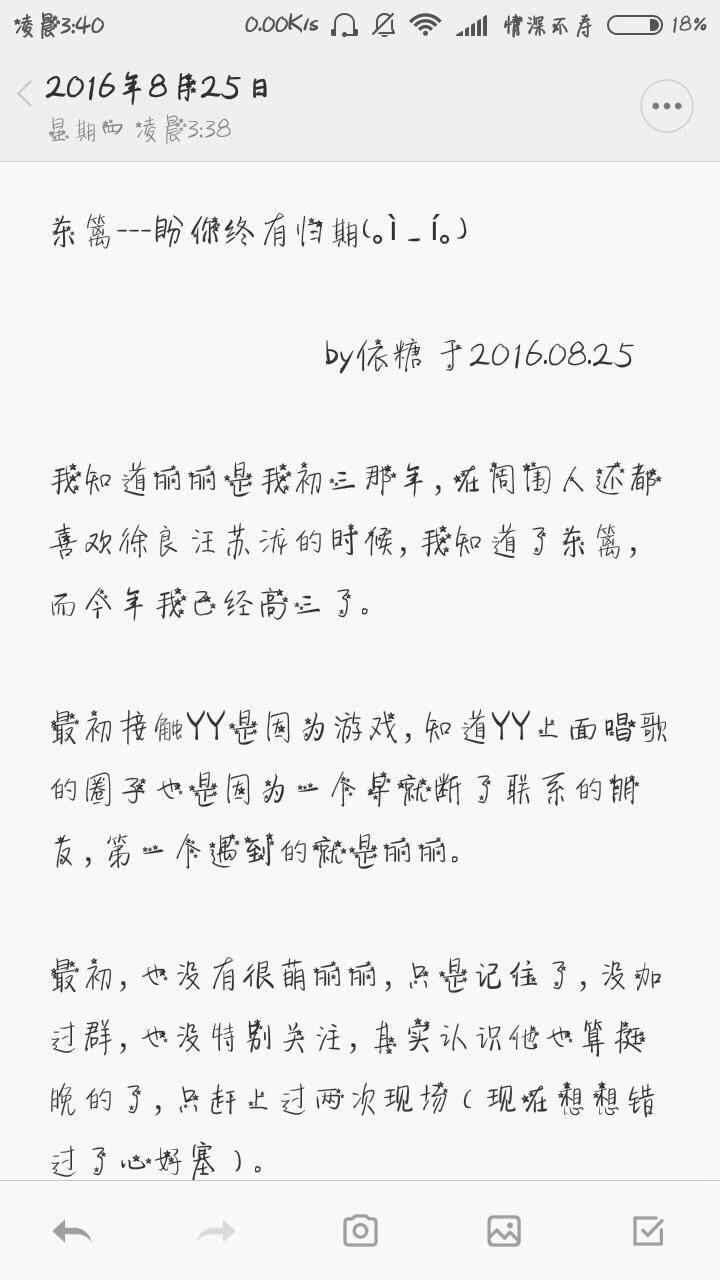 凌晨3:40 0.00K/s 情深不寿 18%
2016年8月25日
星期四 凌晨3:38
东篱---盼你终有归期(｡ì _ í｡)
by依糖 于2016.08.25
我知道丽丽是我初三那年,在周围人还都
喜欢徐良汪苏泷的时候,我知道了东篱,
而今年我已经高三了。
最初接触YY是因为游戏,知道YY上面唱歌
的圈子也是因为一个早就断了联系的朋
友,第一个遇到的就是丽丽。
最初,也没有很萌丽丽,只是记住了,没加
过群,也没特别关注,其实认识他也算挺
晚的了,只赶上过两次现场(现在想想错
过了心好塞)。